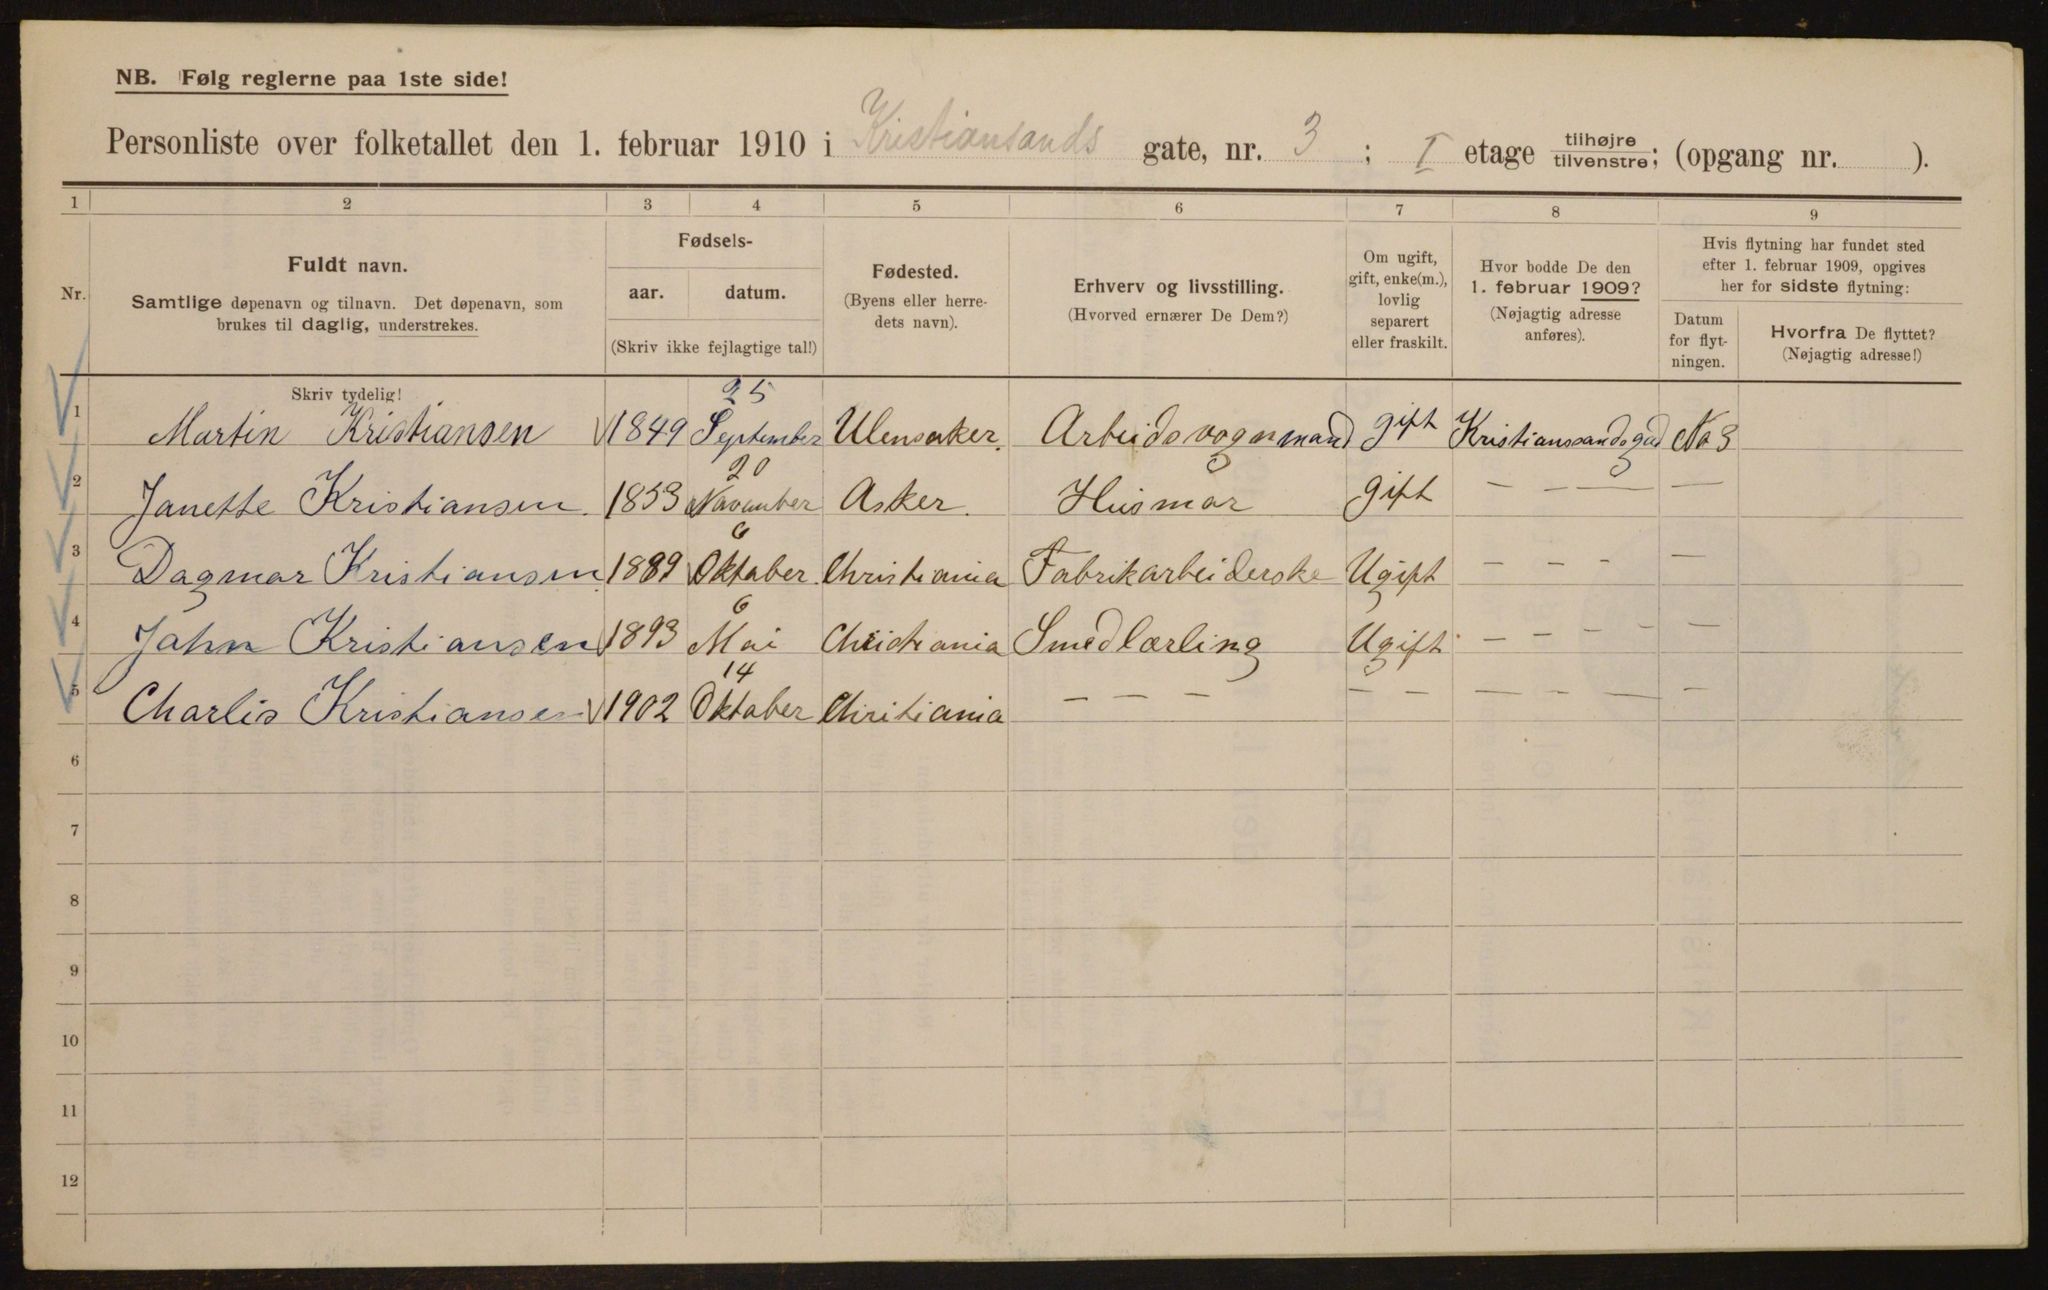 NB. Følg reglerne paa 1ste side!
Personliste over folketallet den 1. februar 1910 i Kristiansands gate, nr. 3 ; I etage tilhøjre tilvenstre; (opgang nr. ).
1 2 3 4 5 6 7 8 9
Nr.
Fuldt navn.
Samtlige døpenavn og tilnavn. Det døpenavn, som
brukes til daglig, understrekes.
Fødsels-
aar. datum.
(Skriv ikke fejlagtige tal!)
Fødested.
(Byens eller herre-
dets navn).
Erhverv og livsstilling.
(Hvorved ernærer De Dem?)
Om ugift,
gift, enke(m.),
lovlig
separert
eller fraskilt.
Hvor bodde De den
1. februar 1909?
(Nøjagtig adresse
anføres).
Hvis flytning har fundet sted
efter 1. februar 1909, opgives
her for sidste flytning:
Datum
for flyt-
ningen.
Hvorfra De flyttet?
(Nøjagtig adresse!)
Skriv tydelig!
1 Martin Kristiansen 1849 25 September Ulensaker. Arbeidsvognmand gift Kristianssandsgad No 3
2 Janette Kristiansen. 1853 20 November Asker. Husmor gift — — — —
3 Dagmar Kristiansen. 1889 6 Oktober. Christiania Fabrikarbeiderske Ugift — — — —
4 John Kristiansen 1893 6 Mai Christiania Smedlærling Ugift — — — — —
5 Charlis Kristiansen 1902 14 Oktober Chritiania — — — — — — — — —
6
7
8
9
10
11
12